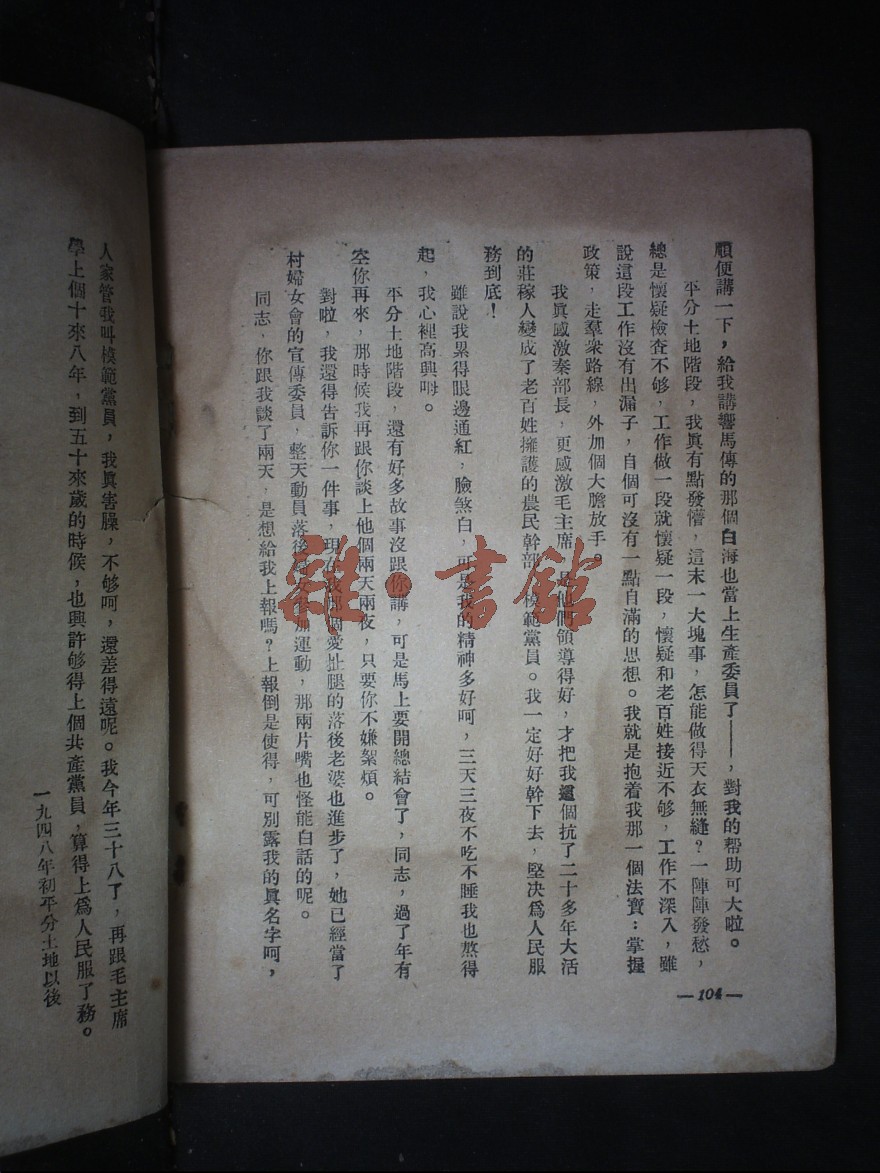 順便講一下，給我講響馬傳的那個白海也當上生產委員了——，對我的帮助可大啦。
平分土地階段，我眞有點發懵，這末一大塊事，怎能做得天衣無縫？一陣陣發愁，
總是懷疑檢查不够，工作做一段就懷疑一段，懷疑和老百姓接近不够，工作不深入，雖
說這段工作沒有出漏子，自個可沒有一點自滿的思想。我就是抱着我那一個法寶：掌握
政策，走羣衆路線，外加個大膽放手。
我眞感激秦部長，更感激毛主席，是他們領導得好，才把我這個抗了二十多年大活
的莊稼人變成了老百姓擁護的農民幹部，模範黨員。我一定好好幹下去，堅决爲人民服
務到底！
雖說我累得眼邊通紅，臉煞白，可是我的精神多好呵，三天三夜不吃不睡我也熬得
起，我心裡高興呵。
平分土地階段，還有好多故事沒跟你講，可是馬上要開總結會了，同志，過了年有
空你再來，那時候我再跟你談上他個兩天兩夜，只要你不嫌絮煩。
對啦，我還得告訴你一件事，現在我那個愛扯腿的落後老婆也進步了，她已經當了
村婦女會的宣傳委員，整天動員落後婦女參加運動，那兩片嘴也怪能白話的呢。
同志，你跟我談了兩天，是想給我上報嗎？上報倒是使得，可別露我的眞名字呵，
—104—
人家管我叫模範黨員，我眞害臊，不够呵，還差得遠呢。我今年三十八了，再跟毛主席
學上個十來八年，到五十來歲的時候，也興許够得上個共產黨員，算得上爲人民服了務。
一九四八年初平分土地以後
雜·書館